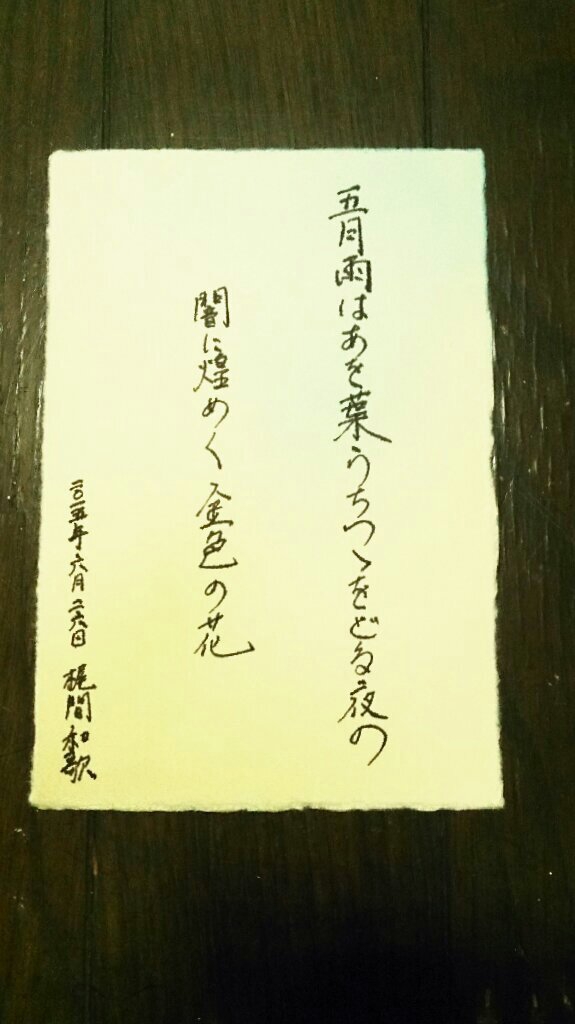 五月雨はあを葉うちつゝをどる夜の
闇に煌めく金色の花
二〇一五年六月二六日 梶間和歌